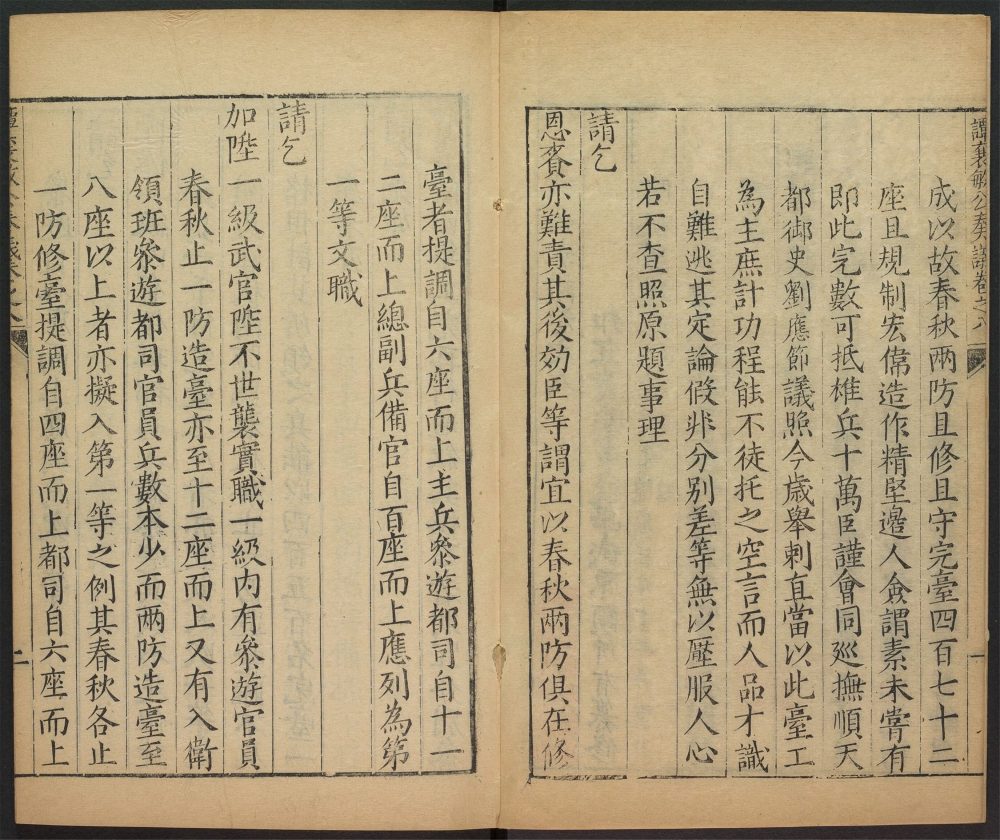 譚襄敏公奏議卷之八
一
成以故春秋兩防且修且守完臺四百七十二
座且規制宏偉造作精堅邊人僉謂素未嘗有
即此完數可抵雄兵十萬臣謹會同廵撫順天
都御史劉應節議照今歲舉剌直當以此臺工
為主庶計功程能不徒托之空言而人品才識
自難逃其定論假非分別差等無以壓服人心
若不查照原題事理
請乞
恩賚亦難責其後効臣等謂宜以春秋兩防俱在修
臺者提調自六座而上主兵叅遊都司自十一
二座而上總副兵備官自百座而上應列為第
一等文職
請乞
加陞一級武官陞不世襲實職一級内有叅遊官員
春秋止一防造臺亦至十二座而上又有入衛
領班叅遊都司官員兵數本少而兩防造臺至
八座以上者亦擬入第一等之例其春秋各止
一防修臺提調自四座而上都司自六座而上
二